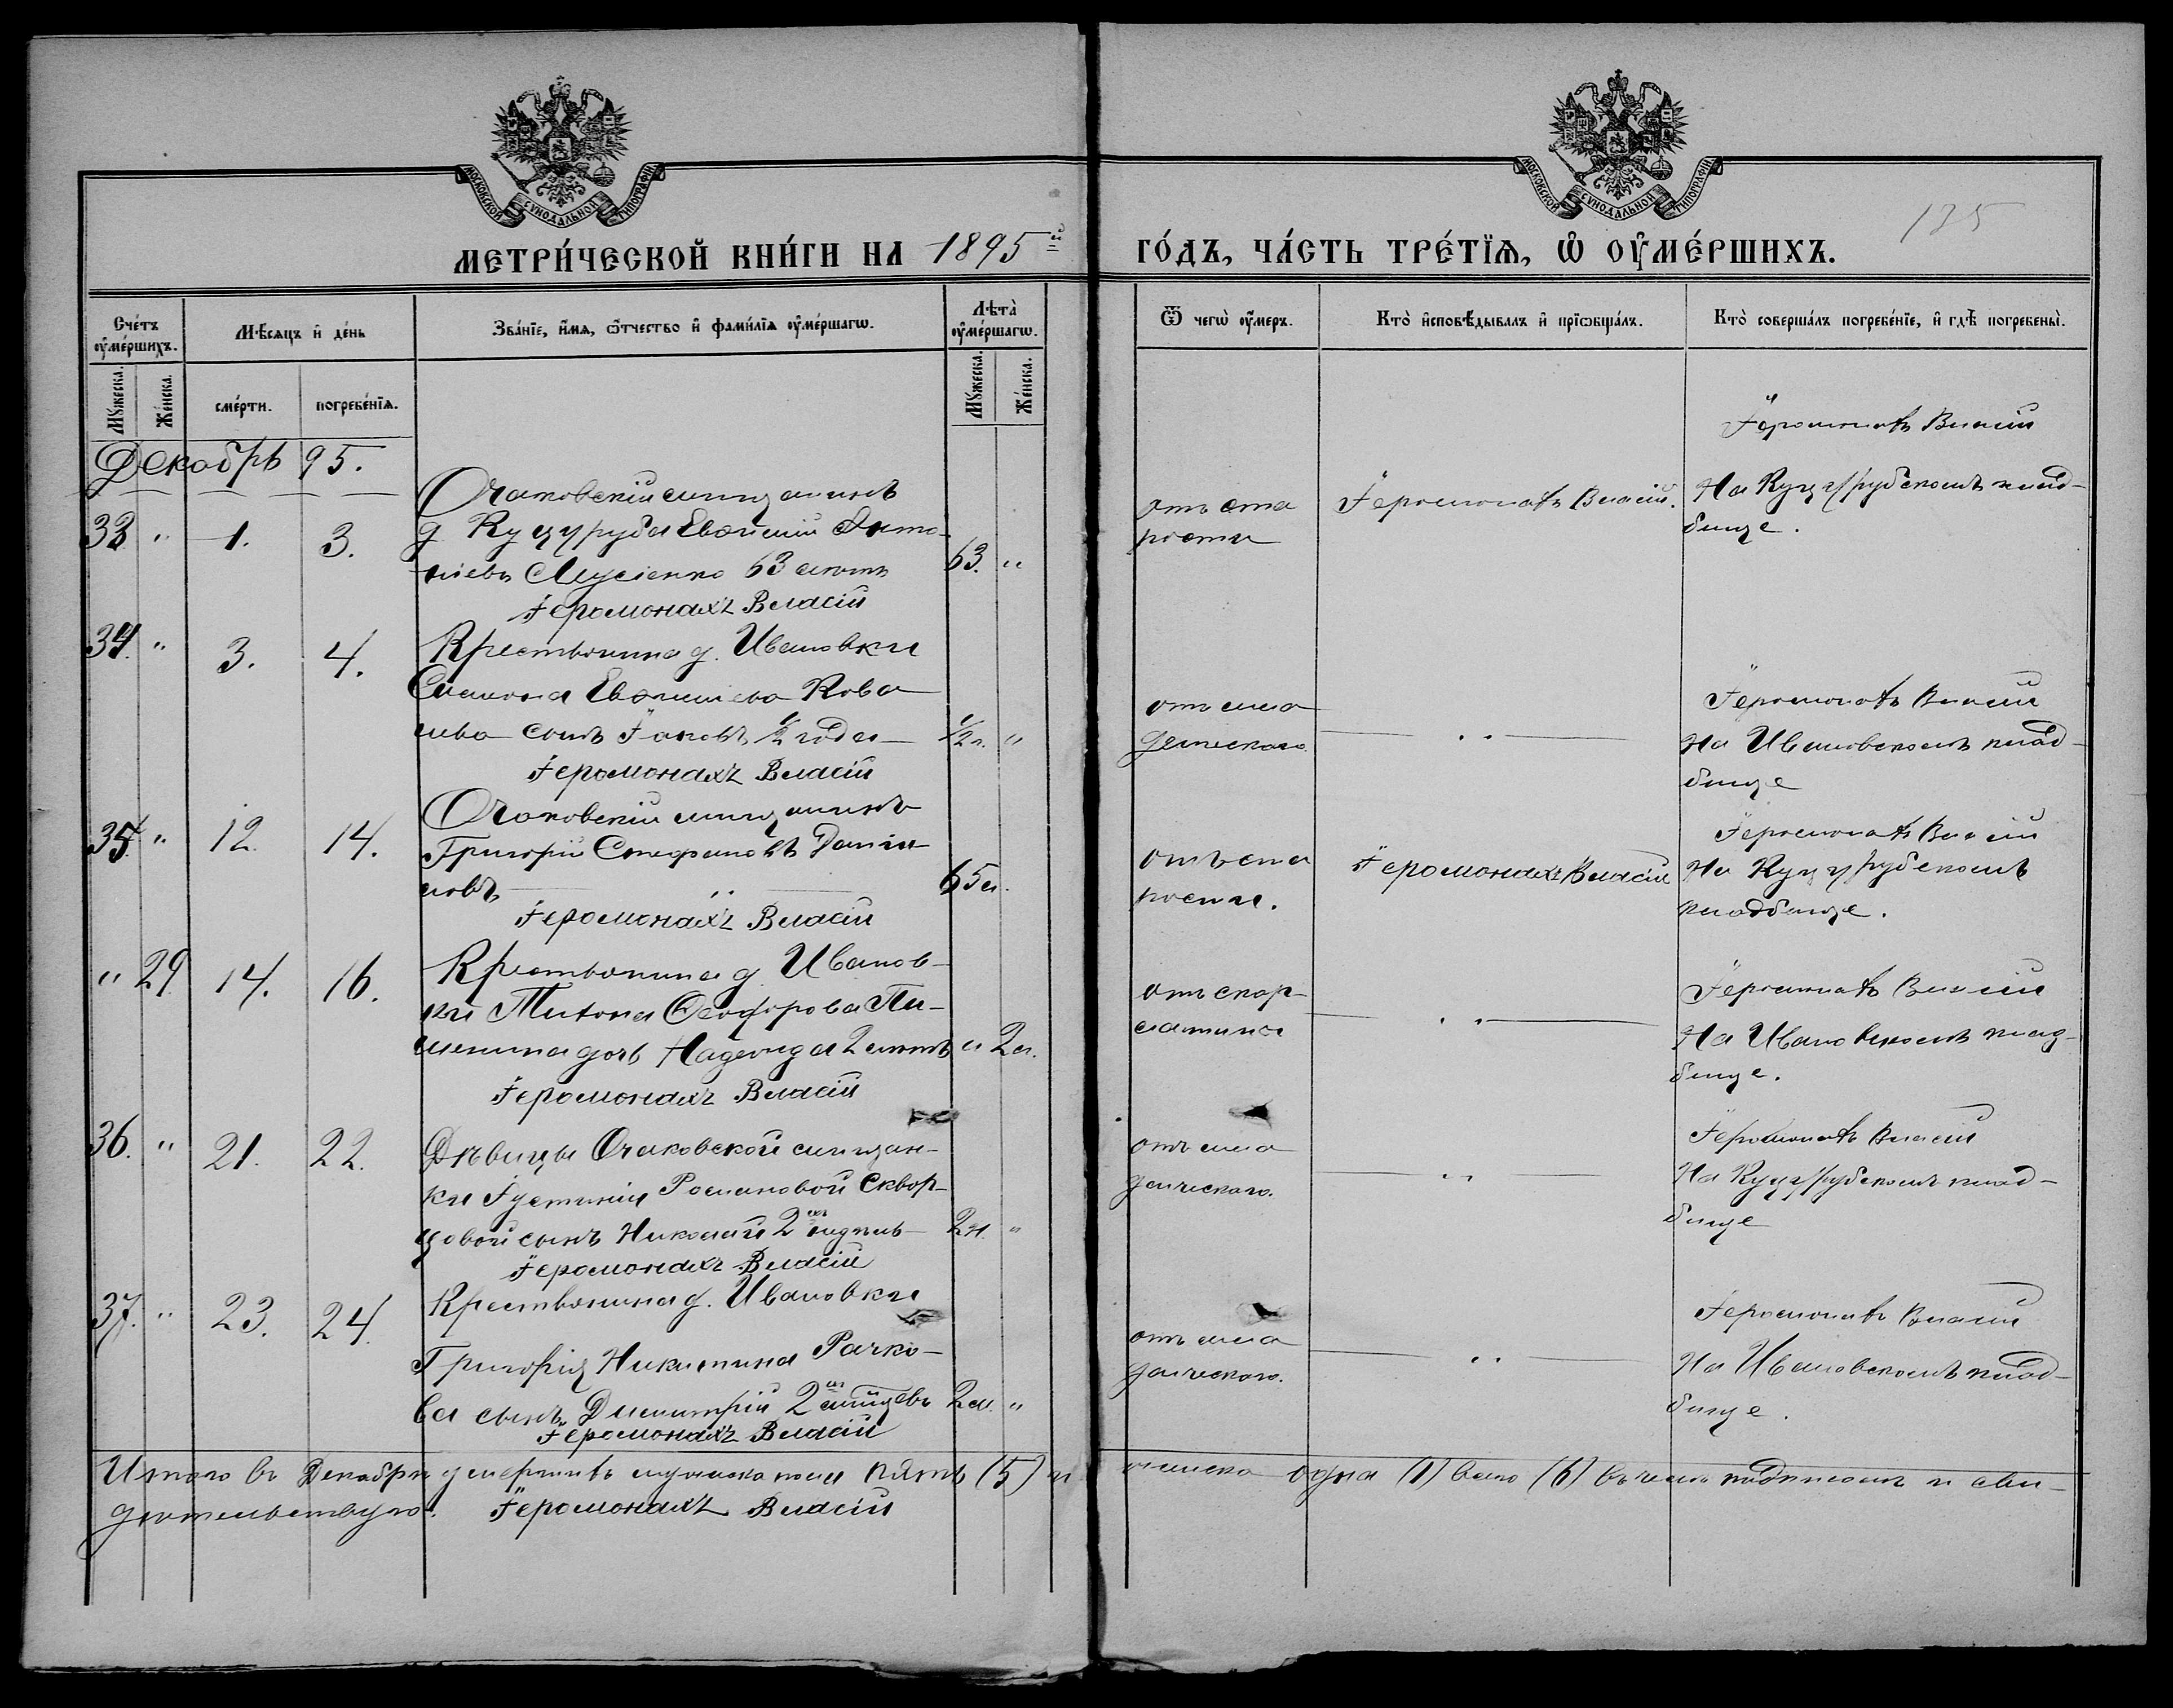 МОСКОВСКОЙ СУНОДАЛЬНОЙ ТИПОГРАФІИ
МОСКОВСКОЙ СУНОДАЛЬНОЙ ТИПОГРАФІИ
135
МЕТРИ́ЧЕСКОЙ КНИ́ГИ НА 1895й ГО́ДЪ, ЧА́СТЬ ТРЕ́ТІѦ, Ѡ ОУМЕ́РШИХЪ.
Сче́тъ оуме́ршихъ.
Мѣсяцъ и де́нь
Зва́нїе, и́мѧ, ѻ҆́тчество и фами́лїѧ оуме́ршагѡ.
Лѣта̀ оуме́ршагѡ.
Ѿ чегѡ̀ оу́меръ.
Кто̀ исповѣ́дывалъ и прїѡбща́лъ.
Кто̀ соверша́лъ погребе́нїе, и гдѣ̀ погребены̀.
Мꙋжеска. Же́нска. сме́рти. погребе́нїѧ. Мꙋ́жеска. Же́нска.
Декабрь 95.
33 " 1. 3.
Очаковскій мищанинъ
д Куцуруба Евѳимій Анто-
ніевъ Мусіенко 63 лѣтъ 63. "
Іеромонахъ Власій
отъ ста
рости
Іеромонахъ Власій.
Іеромонахъ Власій
На Куцурубскомъ клад-
бище.
34. " 3. 4.
Крестьянина д. Ивановки
Симона Евѳимиева Кова
лева сынъ Іаковъ 1/2 года 1/2 г. "
Іеромонахъ Власій
отъ мла
денческаго
Іеромонахъ Власій
На Ивановскомъ клад-
бище
35. " 12. 14.
Очаковскій мищанинъ
Григорій Стефановъ Дани
ловъ 65 л.
Іеромонахъ Власій
отъ ста
рости.
Іеромонахъ Власій
Іеромонахъ Власій
На Куцурубскомъ
кладбище.
" 29 14. 16.
Крестьянина д. Иванов-
ки Титона Ѳеодорова Пи-
менина дочь Надежда 2 лѣтъ " 2 л.
Іеромонахъ Власій
отъ скар-
латины
Іеромонахъ Власій
На Ивановскомъ клад-
бище.
36. " 21. 22.
Дѣвицы Очаковской мищан-
ки Іустиніи Романовой Сквор-
цовой сынъ Николай 2хъ недѣль 2 н. "
Іеромонахъ Власій
отъ мла
денческаго.
Іеромонахъ Власій
На Куцурубскомъ клад-
бище
37. " 23. 24.
Крестьянина д. Ивановки
Григорія Никитина Рачко-
ва сынъ Димитрій 2хъ мисцевъ 2 м. "
Іеромонахъ Власій
отъ мла
денческаго.
Іеромонахъ Власій
На Ивановскомъ клад-
бище.
Итого въ Декабрѣ умершихъ мужеска пола пять (5) и женска одна (1) всего (6) въ чемъ подписомъ и сви-
дѣтельствую. Іеромонахъ Власій